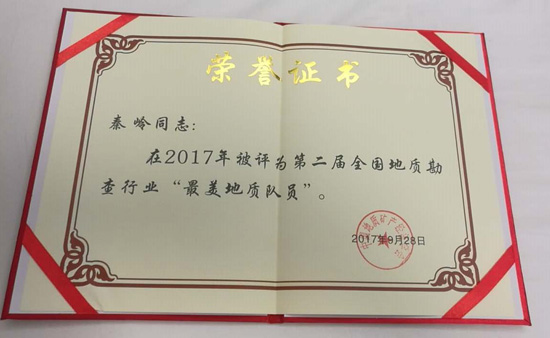 荣誉证书
秦岭同志：
在2017年被评为第二届全国地质勘
查行业“最美地质队员”。
2017年9月28日